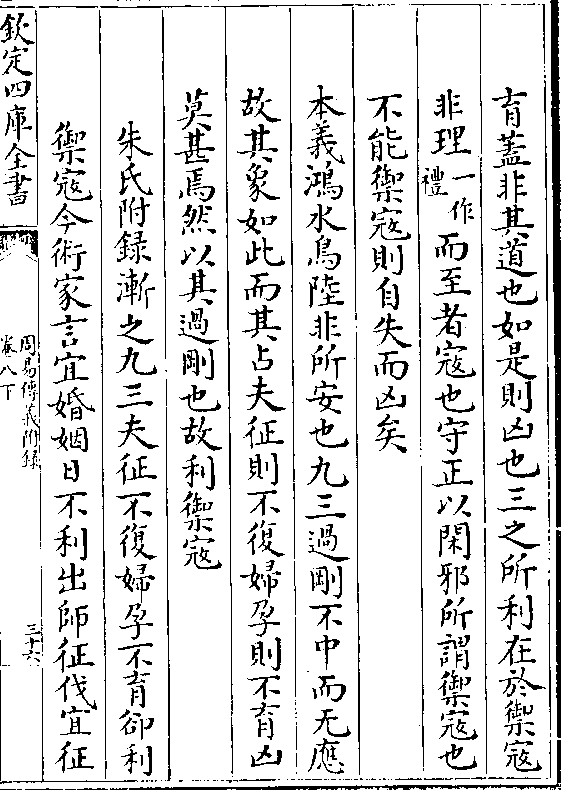 育蓋非其道也如是則凶也三之所利在於禦寇
非理一作禮而至者寇也守正以閑邪所謂禦寇也
不能禦寇則自失而凶矣
本義鴻水鳥陸非所安也九三過剛不中而无應
故其象如此而其占夫征則不復婦孕則不育凶
莫甚焉然以其過剛也故利禦寇
朱氏附録漸之九三夫征不復婦孕不育卻利
禦寇今術家言宜婚姻日不利出師征伐宜征
欽定四庫全書
周易傳義附録
卷八下
三十六